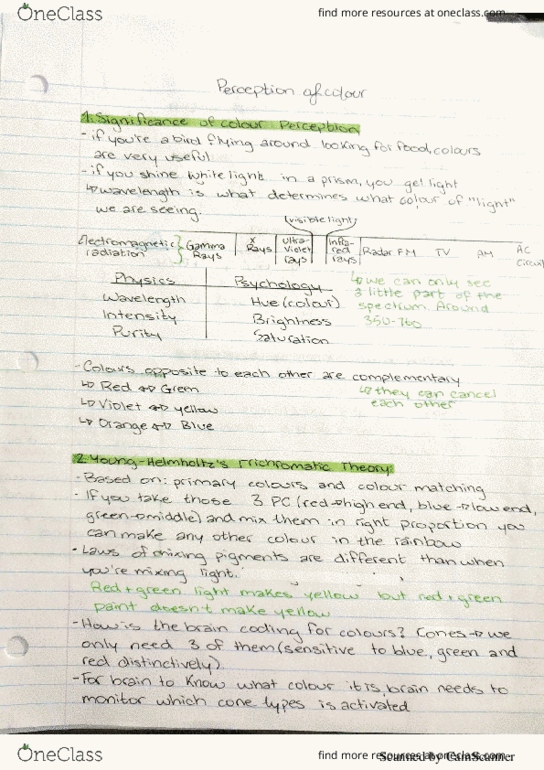 OneClass
find more resources at oneclass.com
Perception of colour
1. Significance of colour Perception
- if you're a bird flying around looking for food, colours
are very useful
- if you shine white light in a prism, you get light
↳ wavelength is what determines what colour of "light"
we are seeing.
(visible light)
Electromagnetic radiation } Gamma Rays | X Rays | Ultra-Violet rays | Infra-red rays | Radar FM TV AM AC Circuit
Physics | Psychology
Wavelength | Hue (colour)
Intensity | Brightness
Purity | Saturation
↳ we can only see
a little part of the
spectrum. Around
350-760
- Colours opposite to each other are complementary
↳ Red ↔ Green
↳ they can cancel
each other
↳ Violet ↔ yellow
↳ Orange ↔ Blue
2. Young-Helmholtz's Trichromatic Theory:
- Based on: primary colours and colour matching
- If you take those 3 PC (red→high end, blue→low end,
green→middle) and mix them in right proportion you
can make any other colour in the rainbow
- Laws of mixing pigments are different than when
you're mixing light.
Red+green light makes yellow but red+green
paint doesn't make yellow
- How is the brain coding for colours? Cones→we
only need 3 of them (sensitive to blue, green and
red distinctively).
- For brain to know what colour it is, brain needs to
monitor which cone types is activated
OneClass
find more resources at oneclass.com
Scanned by CamScanner